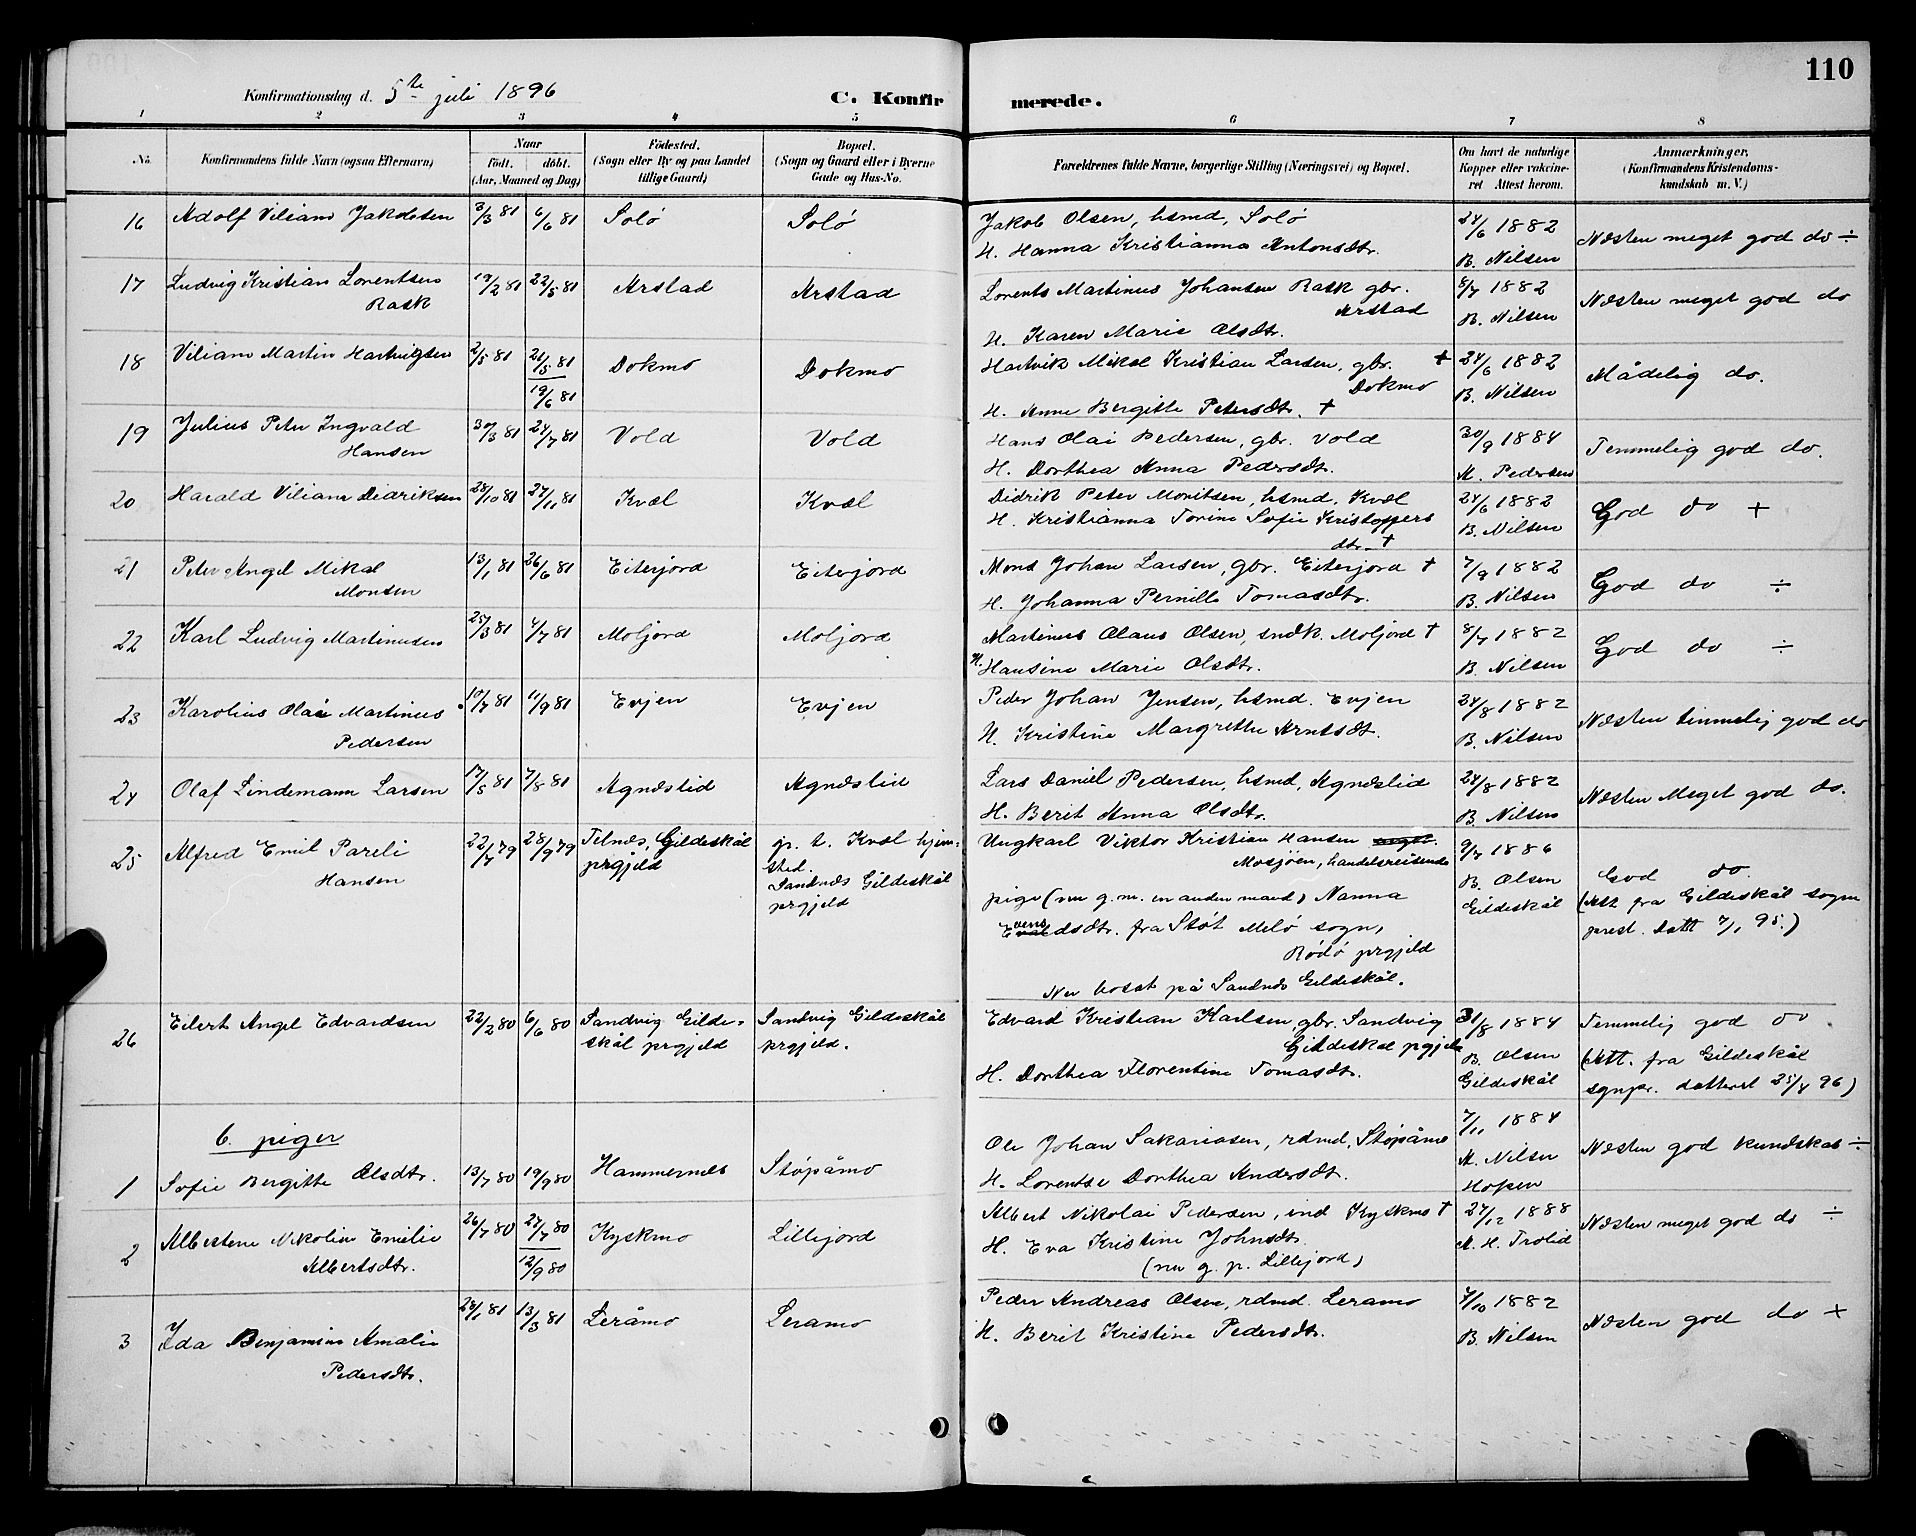 110
Konfirmationsdag d. 5te juli 1896
C. Konfirmerede.
1 2 3 4 5 6 7 8
No.
Konfirmandens fulde Navn (ogsaa Efternavn)
Naar
födt. döbt.
(Aar, Maaned og Dag)
Födested.
(Sogn eller By og paa Landet
tillige Gaard)
Bopæl.
(Sogn og Gaard eller i Byerne
Gade og Hus-No.
Forældrenes fulde Navne, borgerlige Stilling (Næringsvei) og Bopæl.
Om havt de naturlige
Kopper eller vakcine-
ret Attest herom.
Anmærkninger.
(Konfirmandens Kristendoms-
kundskab m. V.)
16 Adolf Viliam Jakobsen 3/3 81 6/6 81 Solö Solö
Jakob Olsen, hsmd, Solö
H. Hanna Kristianna Antonsdtr.
24/6 1882
B. Nilsen
Næsten meget god do ÷
17 Ludvig Kristian Lorentsen
Rask
19/2 81 22/5 81 Arstad Arstad
Lorents Martinus Johansen Rask gbr.
Arstad
H. Karen Marie Olsdtr.
8/7 1882
B. Nilsen
Næsten meget god do
18 Viliam Martin Hartvigsen 2/5 81 21/5 81
19/6 81
Dokmo Dokmo
Hartvik Mikal Kristian Larsen, gbr. +
Dokmo
H. Anne Bergitte Petersdtr. +
24/6 1882
B. Nilsen
Mådelig do.
19 Julius Peter Ingvald
Hansen
30/3 81 24/7 81 Vold Vold
Hans Olai Pedersen, gbr. Vold
H. Dorthea Anna Pedersdtr.
30/9 1884
M. Pedersen
Temmelig god do.
20 Harald Viliam Didriksen 28/10 81 27/11 81 Kvæl Kvæl
Didrik Peter Moritsen, hsmd, Kvæl
H. Kristianna Torine Sofie Kristoffers
dtr. +
24/6 1882
B. Nilsen
God do +
21 Peter Angel Mikal
Monsen
13/1 81 26/6 81 Eiterjord Eiterjord
Mons Johan Larsen, gbr. Eiterjord +
H. Johanna Pernille Tomasdtr.
7/9 1882
B. Nilsen
God do ÷
22 Karl Ludvig Martinusen 25/3 81 4/7 81 Moljord Moljord
Martinus Olaus Olsen, sndk. Moljord +
H. Hansine Marie Olsdtr.
8/7 1882
B. Nilsen
God do ÷
23 Karolius Olai Martinus
Pedersen
10/7 81 11/9 81 Evjen Evjen
Peder Johan Jensen, hsmd. Evjen
H. Kristine Margrethe Arntsdt.
24/8 1882
B. Nilsen
Næsten temmelig god do
24 Olaf Lindemann Larsen 17/5 81 7/8 81 Agnæslid Agnæslid
Lars Daniel Pedersen, hsmd, Agnæslid
H. Berit Anna Olsdtr.
24/8 1882
B. Nilsen
Næsten Meget god do.
25 Alfred Emil Pareli
Hansen
22/7 79 28/9 79 Telnæs, Gildeskål
prgjeld
gr. t. Kvæl hjem-
sted.
Sandnæs Gildeskål
prgjeld
Ungkarl Viktor Kristian Hansen
Mosjöen, handelsreisende
pige (nu g. m. en anden mand) Nanna
Evensdsdtr. fra Stöt Melö sogn,
Rödö prgjeld
Nu bosat på Sandnæs Gildeskål.
9/7 1886
B. Olsen
Gildeskål
God do.
(Att fra Gildeskål sogn
prest. datt 7/1 95.)
26 Eilert Angel Edvardsen 22/2 80 6/6 80 Sandvig Gilde-
skål prgjeld
Sandvig Gildeskål
prgjeld.
Edvard Kristian Karlsen, gbr. Sandvig
Gildeskål pgjeld
H. Dorthea Florentine Tomasdtr.
31/8 1884
B. Olsen
Gildeskål
Temmelig god do
(Att. fra Gildeskål
sgnpr. datteret 25/4 96)
6. piger
1 Sofie Bergitte Olsdtr. 13/7 80 19/9 80 Hammernæs Stöpåmo
Ole Johan Sakariasen, rdmd, Stöpåmo
H. Lorentse Dorthea Andersdt.
7/11 1884
M. Nilsen
Hopen
Næsten god kundskab ÷
2 Albertene Nikoline Emilie
Albertsdtr.
26/7 80 27/7 80
12/9 80
Kyskmo Lillejord
Albert Nikolai Pedersen, ind Kyskmo +
H. Eva Kristine Johnsdt.
(nu g. p. Lillejord)
27/12 1888
M. H. Trolid
Næsten meget god do ÷
3 Ida Benjamine Amalie
Pedersdtr.
28/1 81 13/3 81 Leråmo Leramo
Peder Andreas Olsen, rdmd. Leramo
H. Berit Kristine Pedersdtr.
7/10 1882
B. Nilsen
Næsten god do +